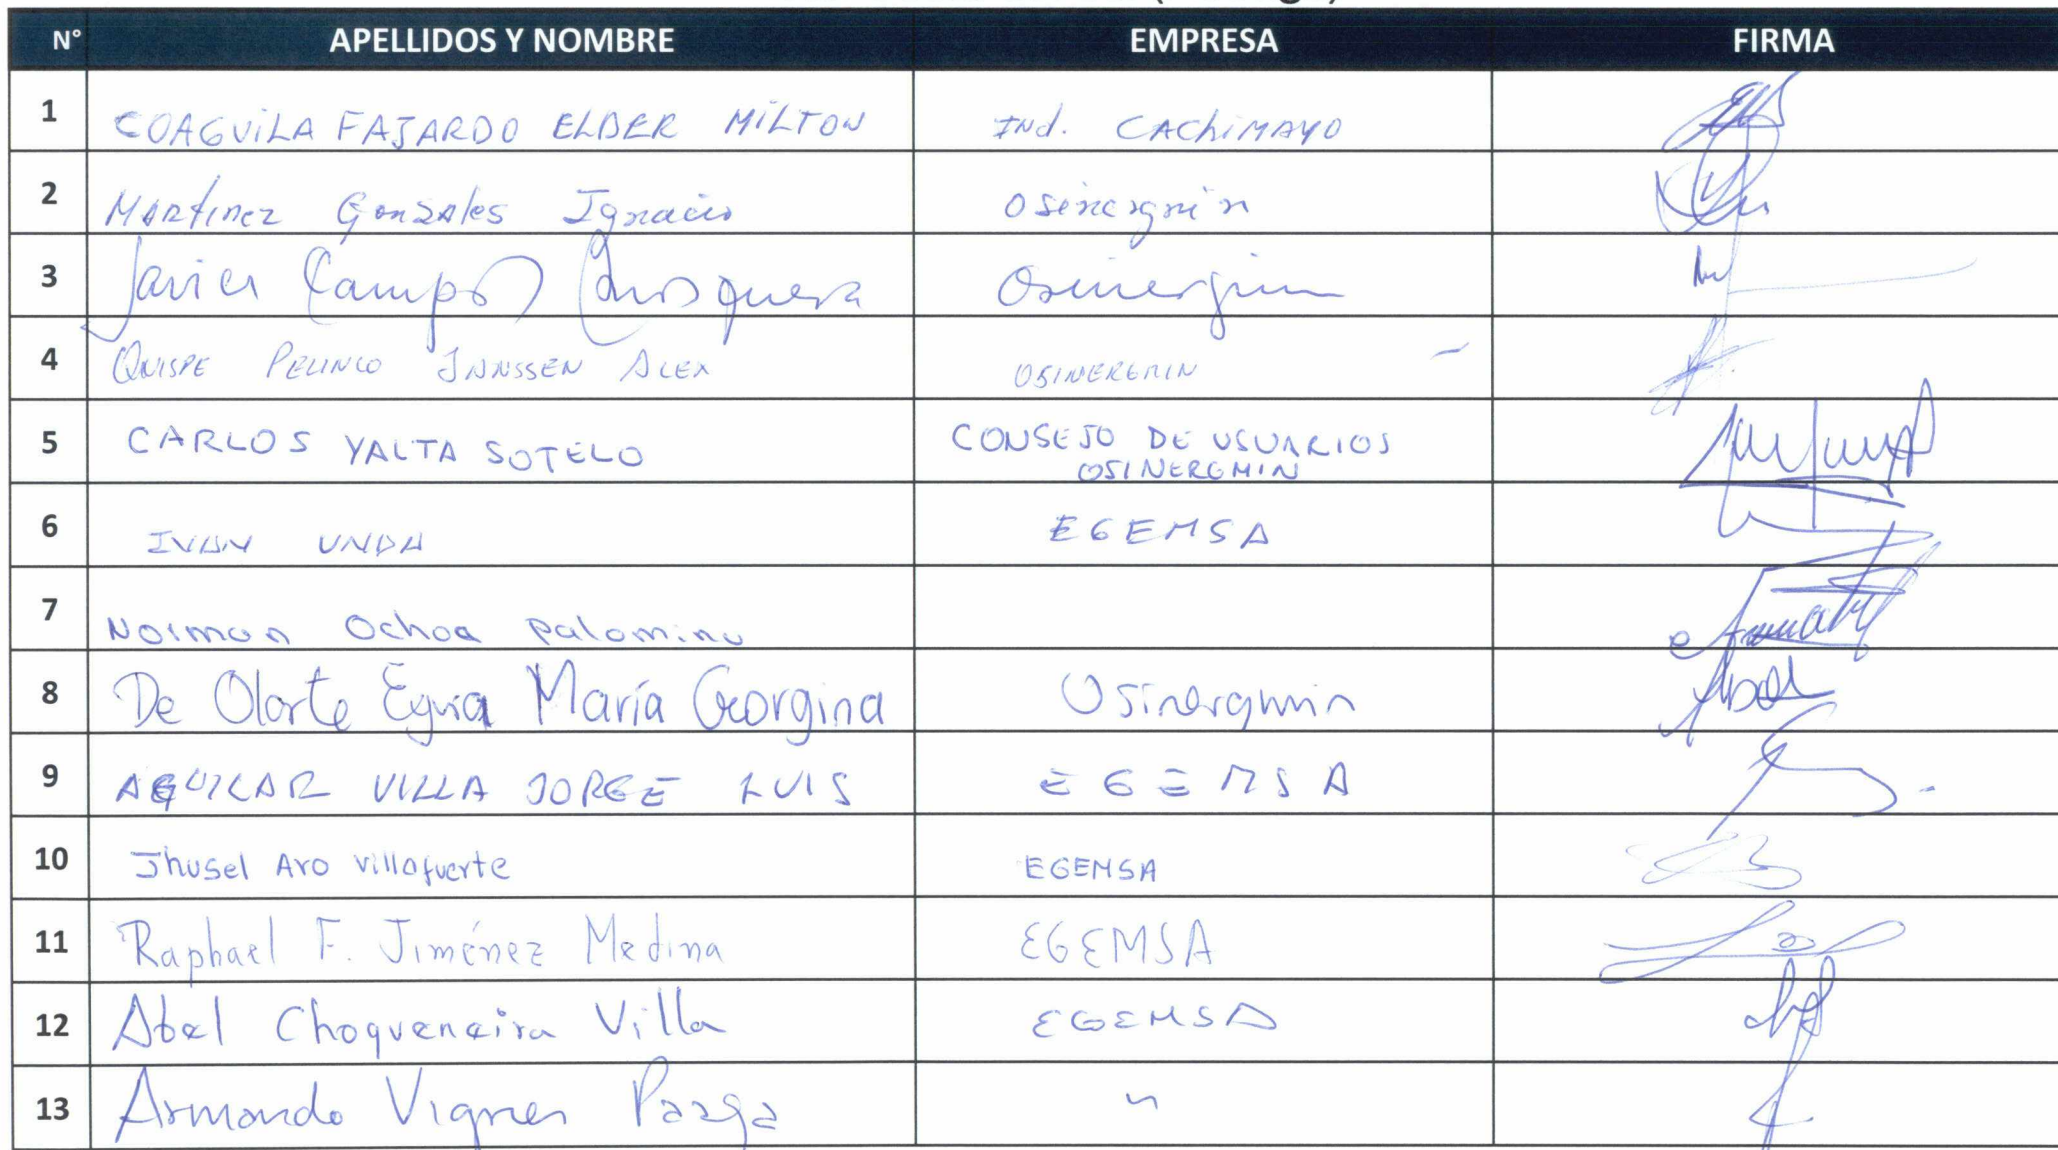 N° APELLIDOS Y NOMBRE EMPRESA FIRMA
1 COAGUILA FAJARDO ELDER MILTON Ind. CACHIMAYO
2 MARTINEZ Gonzales Ignacio Osinergmin
3 Javier Campos Osinergmin
4 QUISPE JANSSEN ALEX OSINERGMIN
5 CARLOS YALTA SOTELO CONSEJO DE USUARIOS
OSINERGMIN
6 IVAN UNDA EGEMSA
7 Norman Ochoa Palomino
8 De Olarte Eguia María Georgina Osinergmin
9 AGUILAR VILLA JORGE LUIS EGEMSA
10 Jhusel Aro Villafuerte EGEMSA
11 Raphael F. Jiménez Medina EGEMSA
12 Abel Choqueneira Villa EGEMSA
13 Armando "